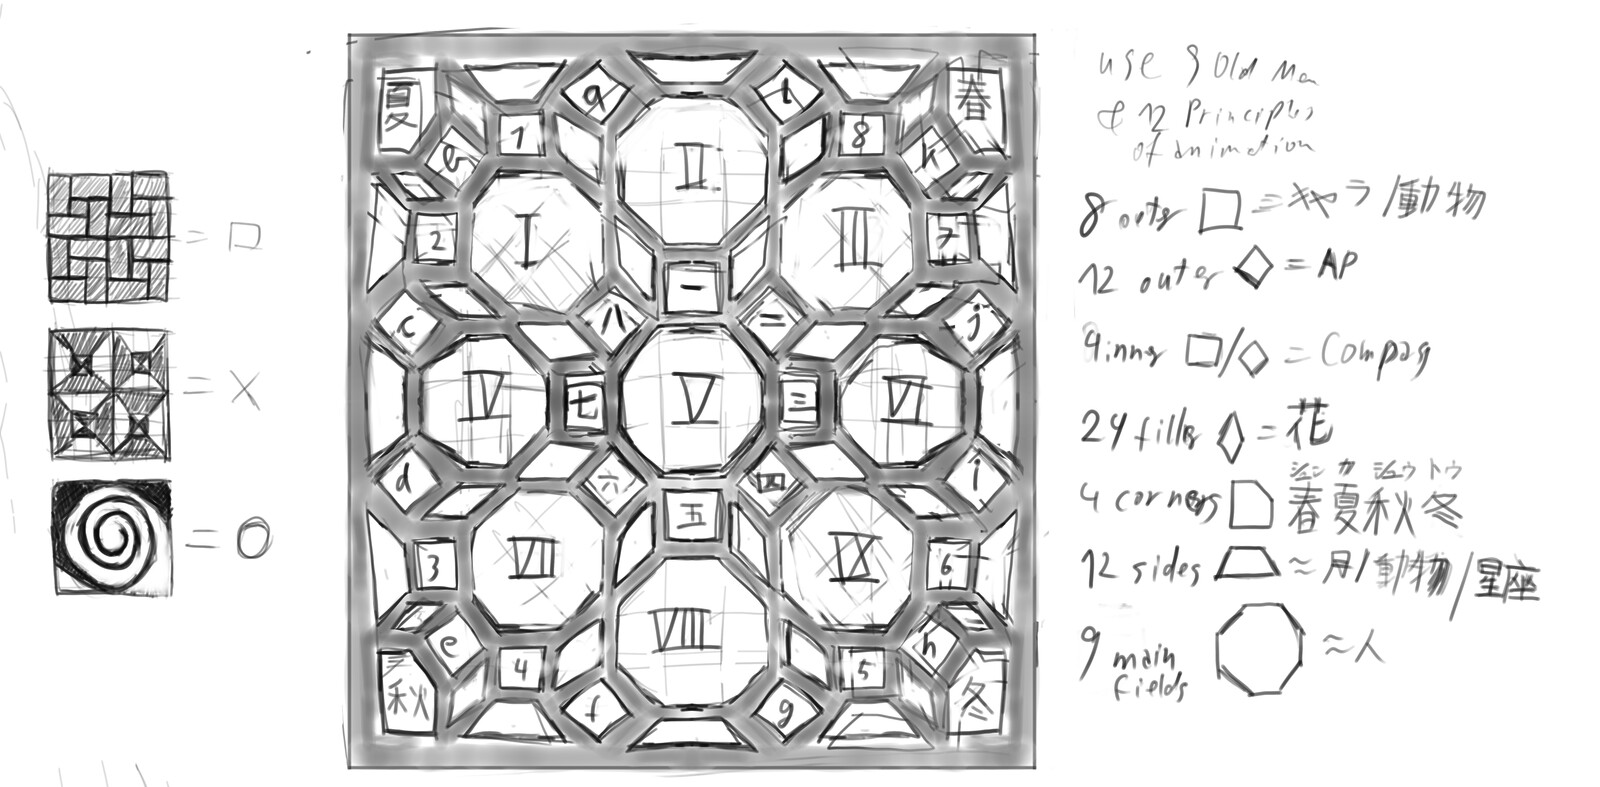 = □
= X
= O
夏 春
a l
1 8
b k
II
I III
2 7
一
c 八 二 j
IV 七 V 三 VI
d 六 四 i
五
VII IX
3 6
VIII
e h
4 5
秋 冬
f g
use 9 Old Men
& 12 Principles
of animation
8 outer □ = キャラ/動物
12 outer ◇ = AP
inner □/◇ = Compag
24 fills ◇ = 花
シュン カ シュウ トウ
4 corners 春夏秋冬
12 sides ≈ 月/動物/星座
9 main ≈ 人
fields